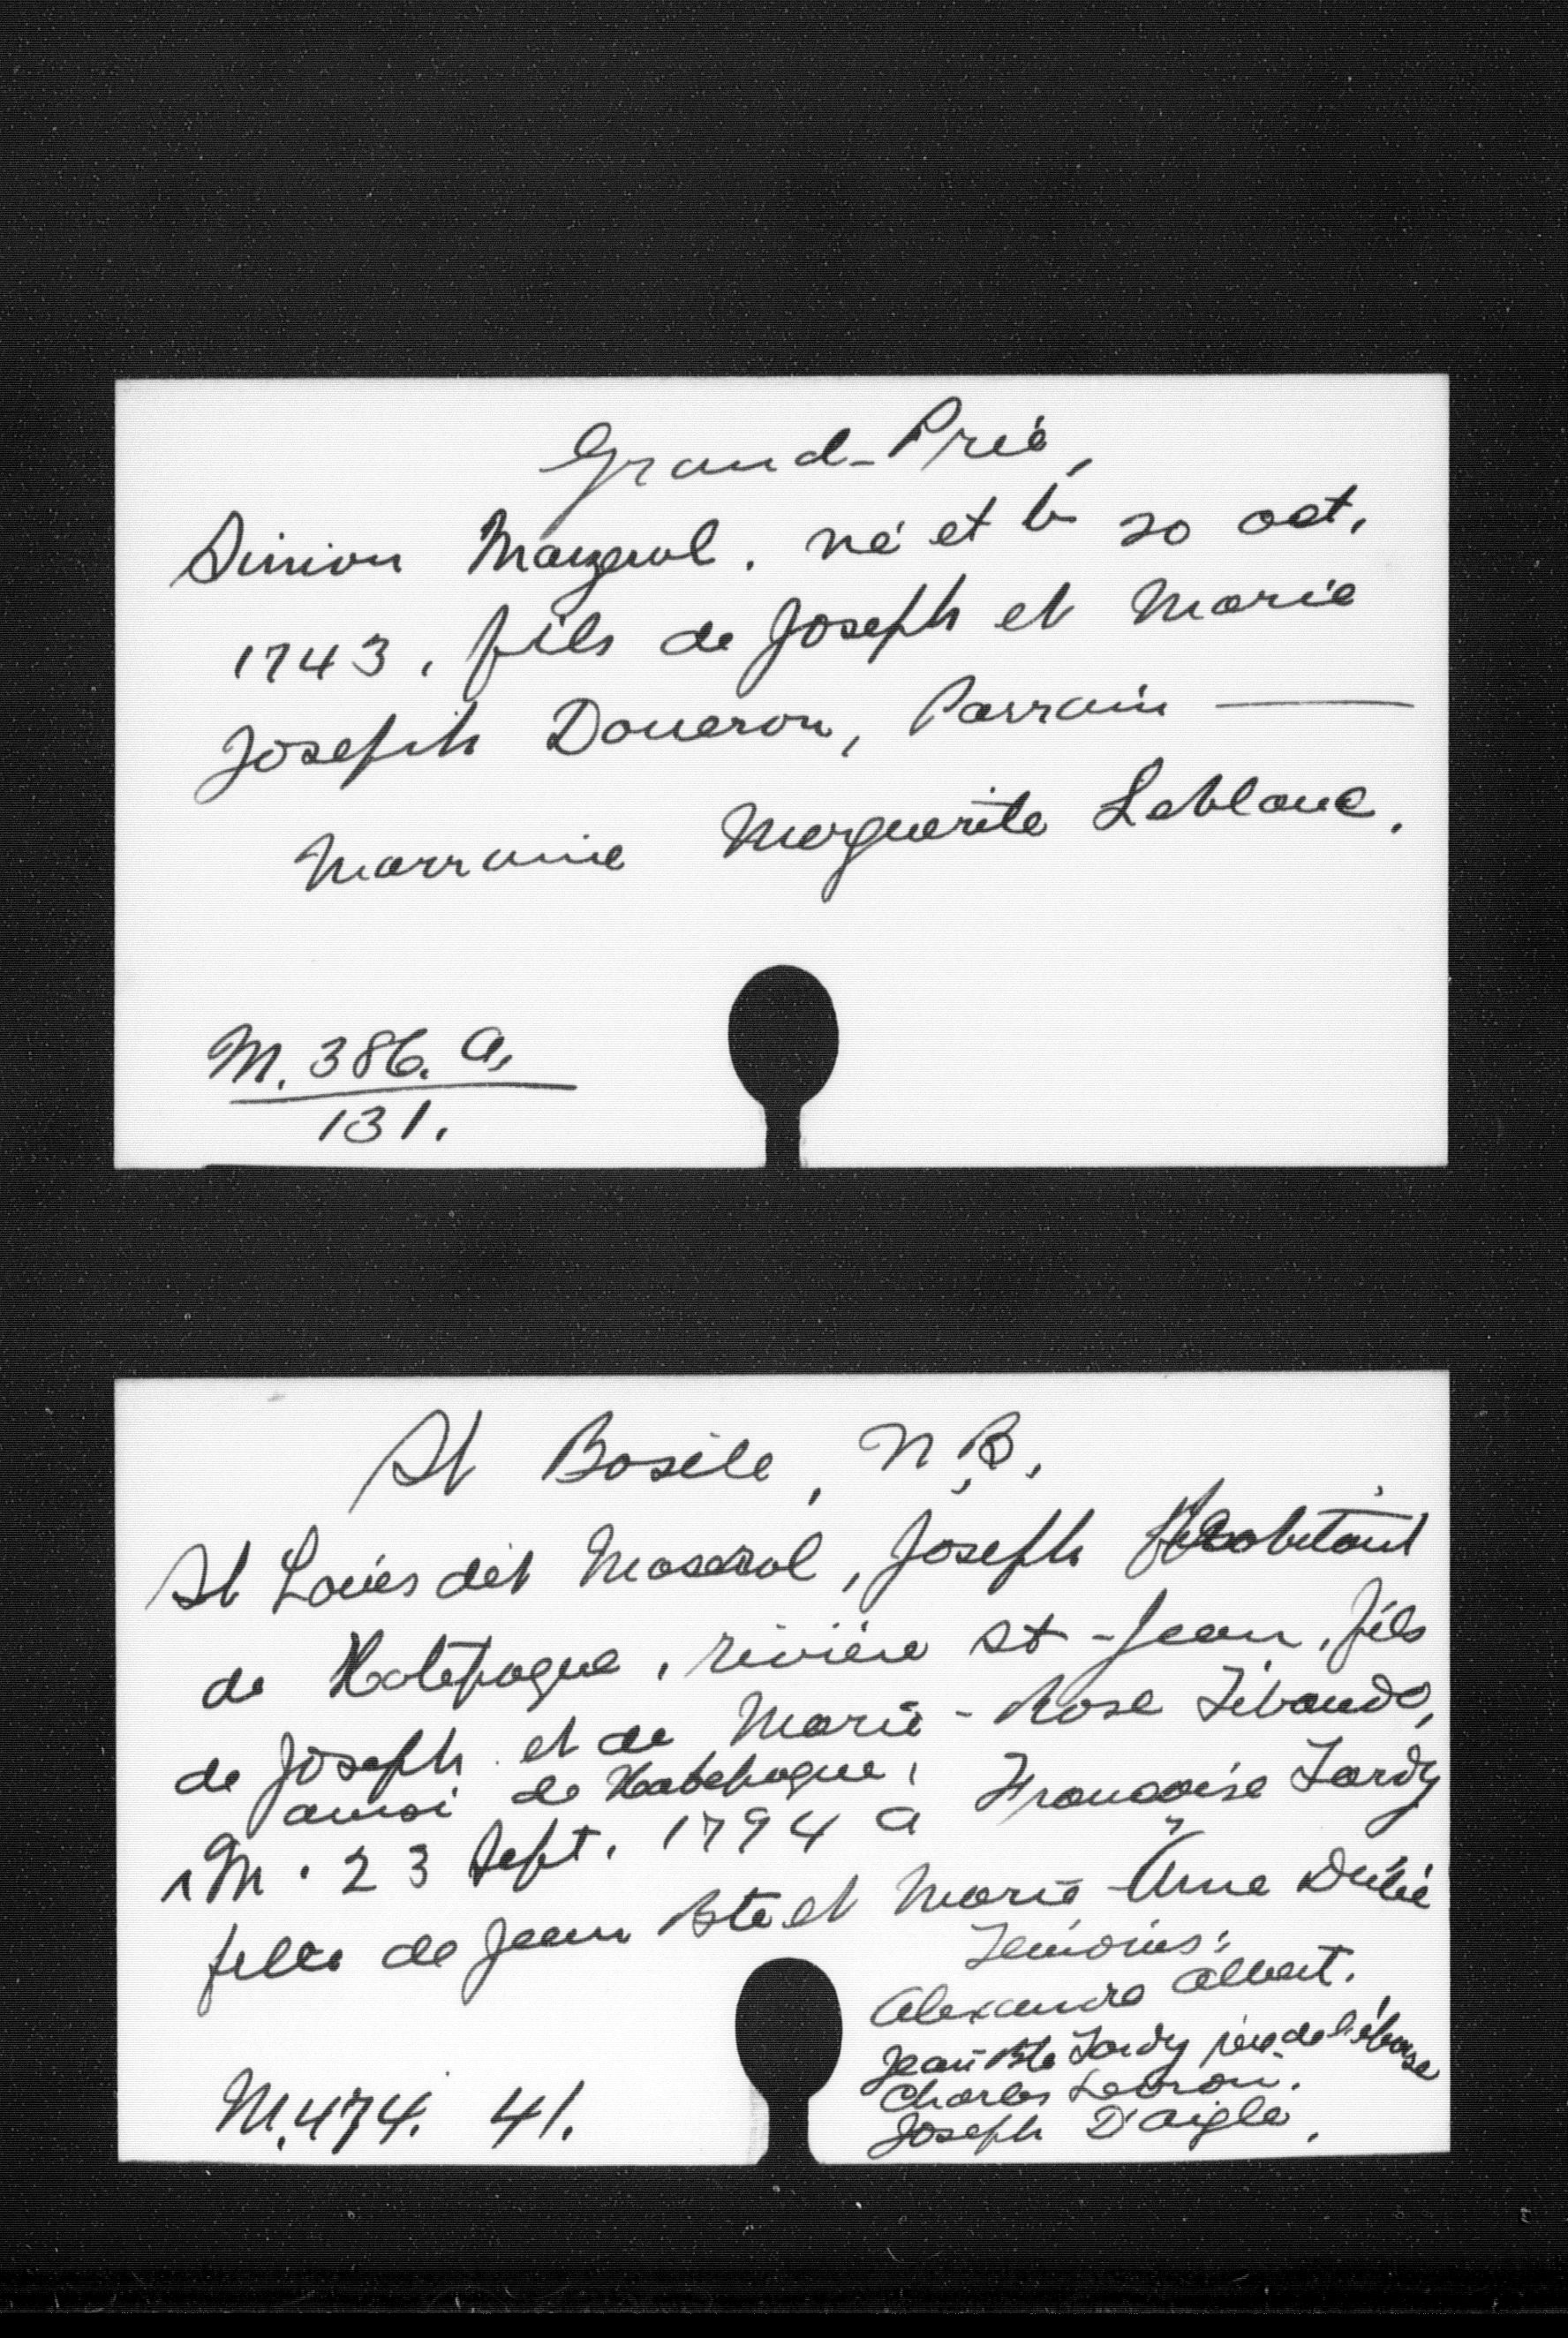 Grand-Pré,
Simon Mazerol. né et b 20 oct.
1743, fils de Joseph et Marie
Joseph Doueron, Parrain ———
Marraine Marguerite Leblanc.
M. 386. A.
131.
St Basile, N.B.
St Louis dit Maserol, Joseph Habitant
de Kotepogue, rivière St-Jean, fils
de Joseph et de Marie-Rose Tibaudo,
aussi de Kotepogue,
M. 23 Sept. 1794 a Francoise Tardy
fille de Jean Bte et Marie-Anne Dubé
Témoins:
Alexandre Albert.
Jean Bte Tardy père de l'épouse
Charles
Joseph D'Aigle.
M. 474. 41.